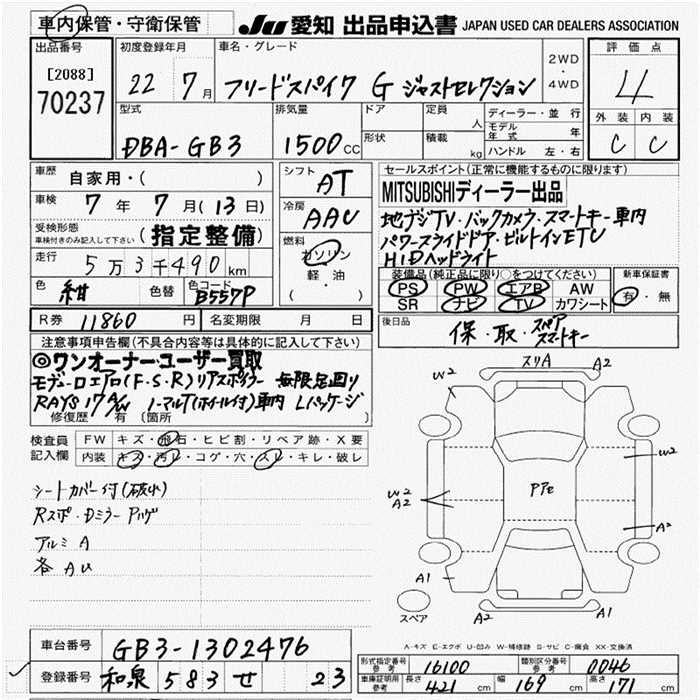 車内保管・守衛保管 JU 愛知 出品申込書 JAPAN USED CAR DEALERS ASSOCIATION
出品番号 初度登録年月 車名・グレード 評価点
[2088]
70237 22 7月 フリードスパイク G ジャストセレクション 2WD・4WD 4
型式 排気量 ドア 定員 人 ディーラー・並行 外装 内装
DBA-GB3 1500cc 形状 積載 kg モデル年式 年 C C
ハンドル 左・右
車歴 自家用・( ) シフト AT セールスポイント(正常に機能するものに限ります)
車検 7年 7月(13日) 冷房 AAC MITSUBISHIディーラー出品
受検形態 車検付きのみ記入して下さい (指定整備) 地デジTV・バックカメラ・スマートキー車内
走行 5万3千490km 燃料 ガソリン 軽油 ( ) パワースライドドア・ビルトインETC
HIDヘッドライト
色 紺 色替 色コード B557P 装備品(純正品に限り○をつけてください) 新車保証書
PS PW エアB AW 有・無
SR ナビ TV カワシート
R券 11860円 名変期限 月 日 後日品 保・取・スペア スマートキー
注意事項申告欄(不具合内容等は具体的に記入して下さい)
◎ワンオーナー・ユーザー買取
モデューロエアロ(F・S・R)リアスポイラー 無限足回り
RAYS 17AW ノーマルT(ホイル付)車内 Lパッケージ
修復歴 有 (箇所
検査員記入欄 FW キズ・飛石・ヒビ割・リペア跡・X要
内装 キズ・汚レ・コゲ・穴・スレ・キレ・破レ
シートカバー付(破れ)
Rスポ・Dミラー Pハゲ
アルミ A
各 AU
スリA A2
W2
W2
W2
A2
PPセ
A2
A1
A2 A1
スペア
A-キズ E-エクボ U-凹み W-補修跡 S-サビ C-腐食 XX-交換済
車台番号 GB3-1302476
登録番号 和泉 583 せ 23
形式指定番号 参考 16100 類別区分番号 参考 0046
車庫証明用 参考 長さ 421cm 幅 169cm 高さ 171cm